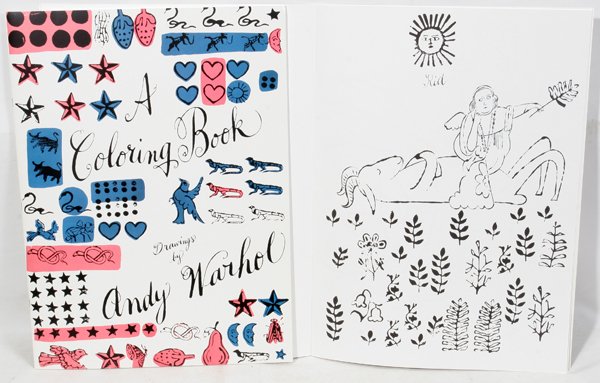 A
Coloring Book
Drawings
by
Andy Warhol